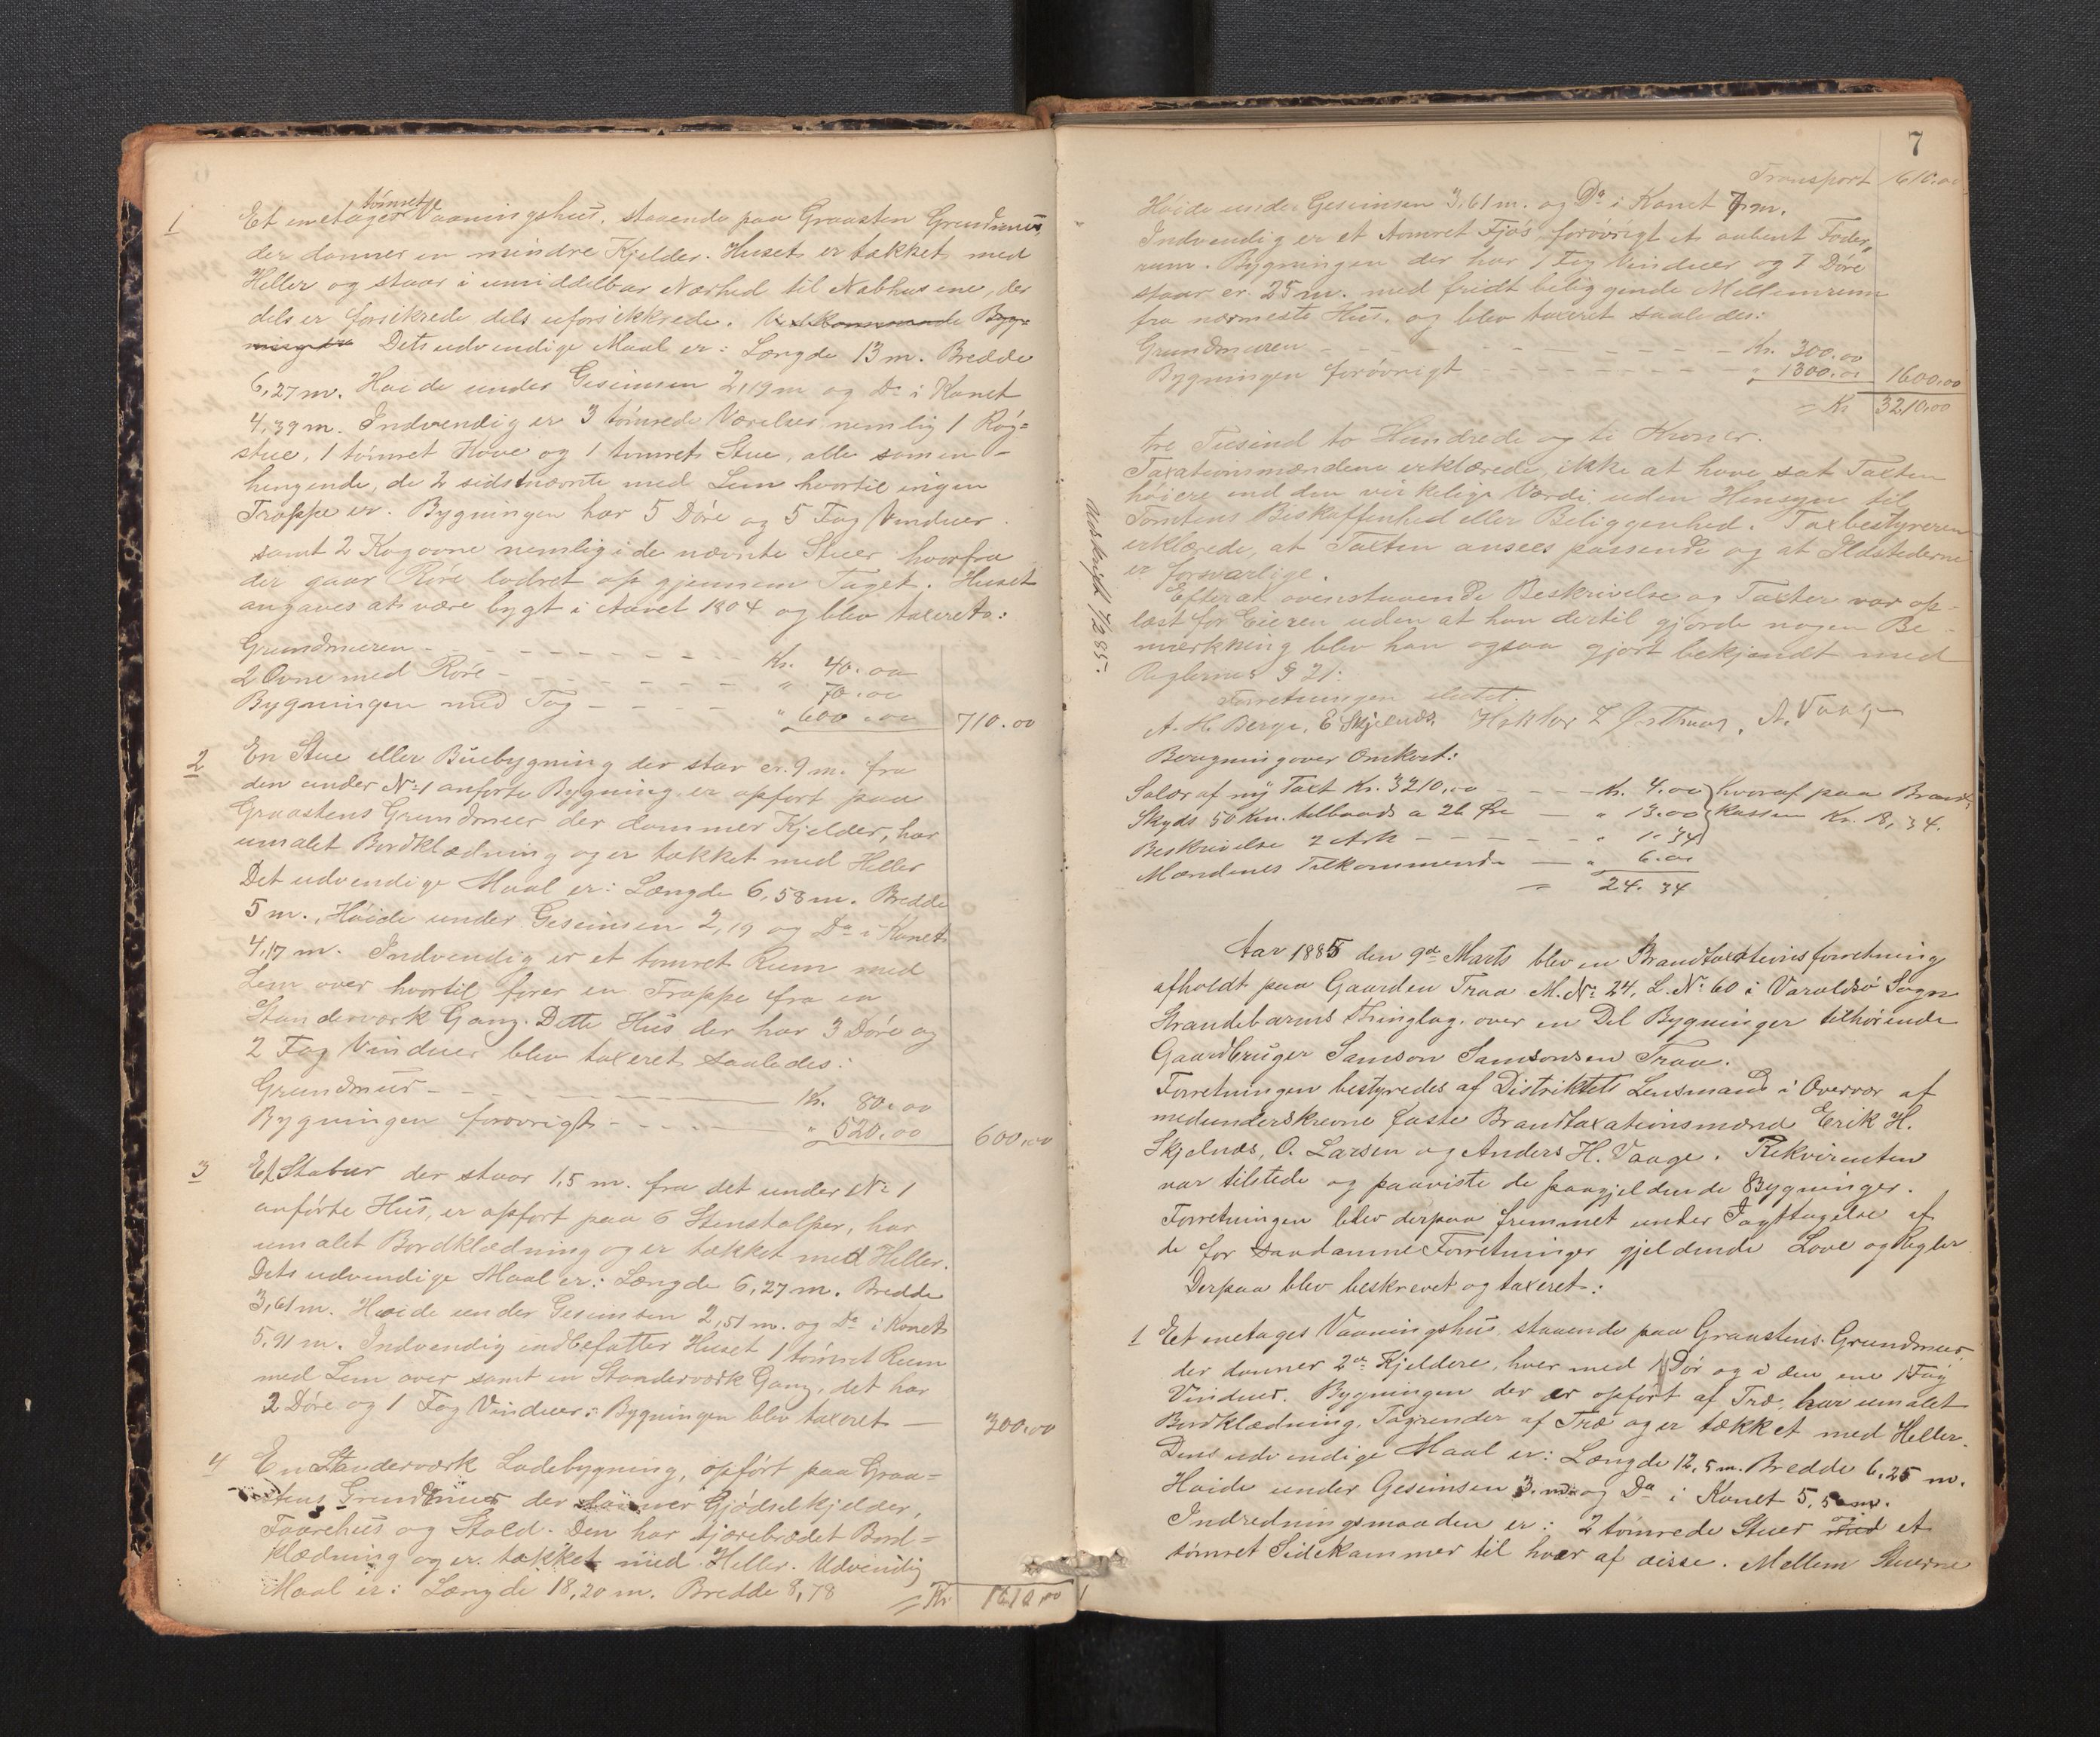 1 Et enetages tømret Vaaningshus, staaende paa Graasten Grundmur,
der danner en mindre Kjelder. Huset er tækket med
Heller og staar i umiddelbar Nærhed til Nabhusene, der
dels er forsikrede dels uforsikkrede. Vedkommende Byg-
ninger Dets udvendige Maal er: Længde 13 m. Bredde
6,27 m. Høide under Gesimsen 2,19 m og Do i Kanet
4,39 m. Indvendig er 3 tømrede Værelser nemlig 1 Røg=
stue, 1 tømret Kove og 1 tømret Stue, alle samen-
hengende, de 2 sidstnævnte med Lem hvortil ingen
Trappe er. Bygningen har 5 Døre og 5 Fag Vinduer
samt 2 Kogovne nemlig i de nævnte Stuer hvorfra
der gaar Røre lodret op gjennem Taget. Huset
angaves at være bygt i Aaret 1804 og blev taxeret:
Grundmuren - - - Kr. 40.00
2 Ovne med Røre - - - " 70.00
Bygningen med Tag - - - " 600.00 710.00
2 En Stue eller Buebygning der star cr. 9 m. fra
den under No 1 anførte Bygning er opført paa
Graastens Grundmur der danner Kjelder, har
umalet Bordklædning og er tækket med Heller
Det udvendige Maal er: Længde 6,58 m. Bredde
5 m., Høide under Gesimsen 2,19 og Do i Kanet
4,17 m. Indvendig er et tømret Rum med
Lem over hvortil fører en Trappe fra en
Standerværk Gang. Dette Hus der har 3 Døre og
2 Fag Vinduer blev taxeret saaledes:
Grundmur - - - Kr. 80.00
Bygningen forøvrigt - - - " 520.00 600.00
3 Et Stabur der staar 1,5 m. fra det under No 1
anførte Hus, er opført paa 6 Stenstolper, har
umalet Bordklædning og er tækket med Heller.
Dets udvendige Maal er: Længde 6,27 m. Bredde
3,61 m. Høide under Gesimsen 2,51 m. og Do i Kanet
5,91 m. Indvendig indbefatter Huset 1 tømret Rum
med Lem over samt en Standerværk Gang, det har
2 Døre og 1 Fag Vinduer. Bygningen blev taxeret — 300.00
4 En Standerværk Ladebygning, opført paa Graa=
stens Grundmur der danner Gjødselkjelder,
Faarehus og Stald. Den har tjærebrædet Bord=
klædning og er tækket med Heller. Udvendig
Maal er: Længde 18,20 m. Bredde 8,78
= Kr. 1610,00
7
Transport 1610.00
Høide under Gesimsen 3,61 m. og Do i Kanet 7 m.
Indvendig er et tømret Fjøs forøvrigt et aabent Foder„
rum. Bygningen der har 1 Fag Vinduer og 7 Døre
staar cr. 25 m. med fridt beliggende Mellemrum
fra nærmeste Hus, og blev taxeret saaledes:
Grundmuren - - - Kr. 300.00
Bygningen forøvrigt - - - " 1300.00 1600.00
= Kr 3210.00
tre Tusind to Hundrede og ti Kroner.
Taxationsmændene erklærede, ikke at have sat Taxten
høiere end den virkelige Værdi uden Hensyn til
Tomtens Beskaffenhed eller Beliggenhed. Taxbestyreren
erklærede, at Taxten ansees passende og at Ildstederne
er forsvarlige.
Efterat ovenstaaende Beskrivelse og Taxter var op-
læst for Eieren uden at han dertil gjorde nogen Be-
mærkning blev han ogsaa gjort bekjendt med
Reglernes § 21.
Forretningen sluttet.
A. H. Berge, E Skjelnæs, Haktor L Østhuus, A. Vaage
Udskrift 1/2 85.
Beregning over Omkost:
Salær af ny Taxt Kr. 3210,00 - - - Kr. 4.00 } hvoraf paa Brand-
Skyds 50 Km. tilbands a 26 Øre — " 13.00 } kassen Kr. 18,34.
Beskrivelse 2 Ark - - - " 1.34 }
Mændenes Tilkommende — " 6.00
= 24.34
Aar 1885 den 9de Marts blev en Brandtaxationsforretning
afholdt paa Gaarden Traa M. No 24, L. No 60 i Varaldsø Sogn
Strandebarms Thinglag, over en Del Bygninger tilhørende
Gaardbruger Samson Samsonsen Traa.
Forretningen bestyredes af Distriktets Lensmand i Overvær af
medunderskrevne faste Brandtaxationsmænd Erik H.
Skjelnæs, O. Larsen og Anders H. Vaage. Rekvirenten
var tilstede og paaviste de paagjeldende Bygninger.
Forretningen blev derpaa fremmet under Iagttagelse af
de for saadanne Forretninger gjeldende Love og Regler
Derpaa blev beskrevet og taxeret:
1 Et enetages Vaaningshus, staaende paa Graastens Grundmur,
der danner 2de Kjeldere, hver med 1 Dør og i den ene 1 Fag
Vinduer. Bygningen der er opført af Træ, har umalet
Bordklædning, Tagrender af Træ og er tækket med Heller.
Dens udvendige Maal er: Længde 12,5 m. Bredde 6,25 m.
Høide under Gesimsen 3. m. og Do i Kanet 5,50 m.
Indredningsmaaden er: 2 tømrede Stuer med og et
tømret Sidekammer til hver af disse. Mellem Stuerne